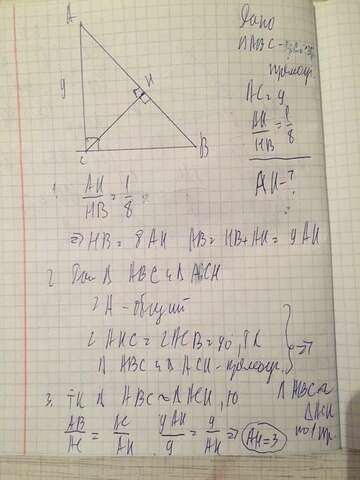 A
9
H
C
B
Дано
△ABC -
прямоуг.
AC = 9
AH/HB = 1/8
AH - ?
1. AH/HB = 1/8
⇒ HB = 8AH AB = HB + AH = 9AH
2. △ ABC и △ ACH
∠A - общий
∠AHC = ∠ACB = 90, тк
△ ABC и △ ACH - прямоуг.
⇒
△ABC ~
△ACH
по 1 пр
3. тк △ ABC ~ △ ACH, то
AB/AC = AC/AH 9AH/9 = 9/AH ⇒ AH = 3